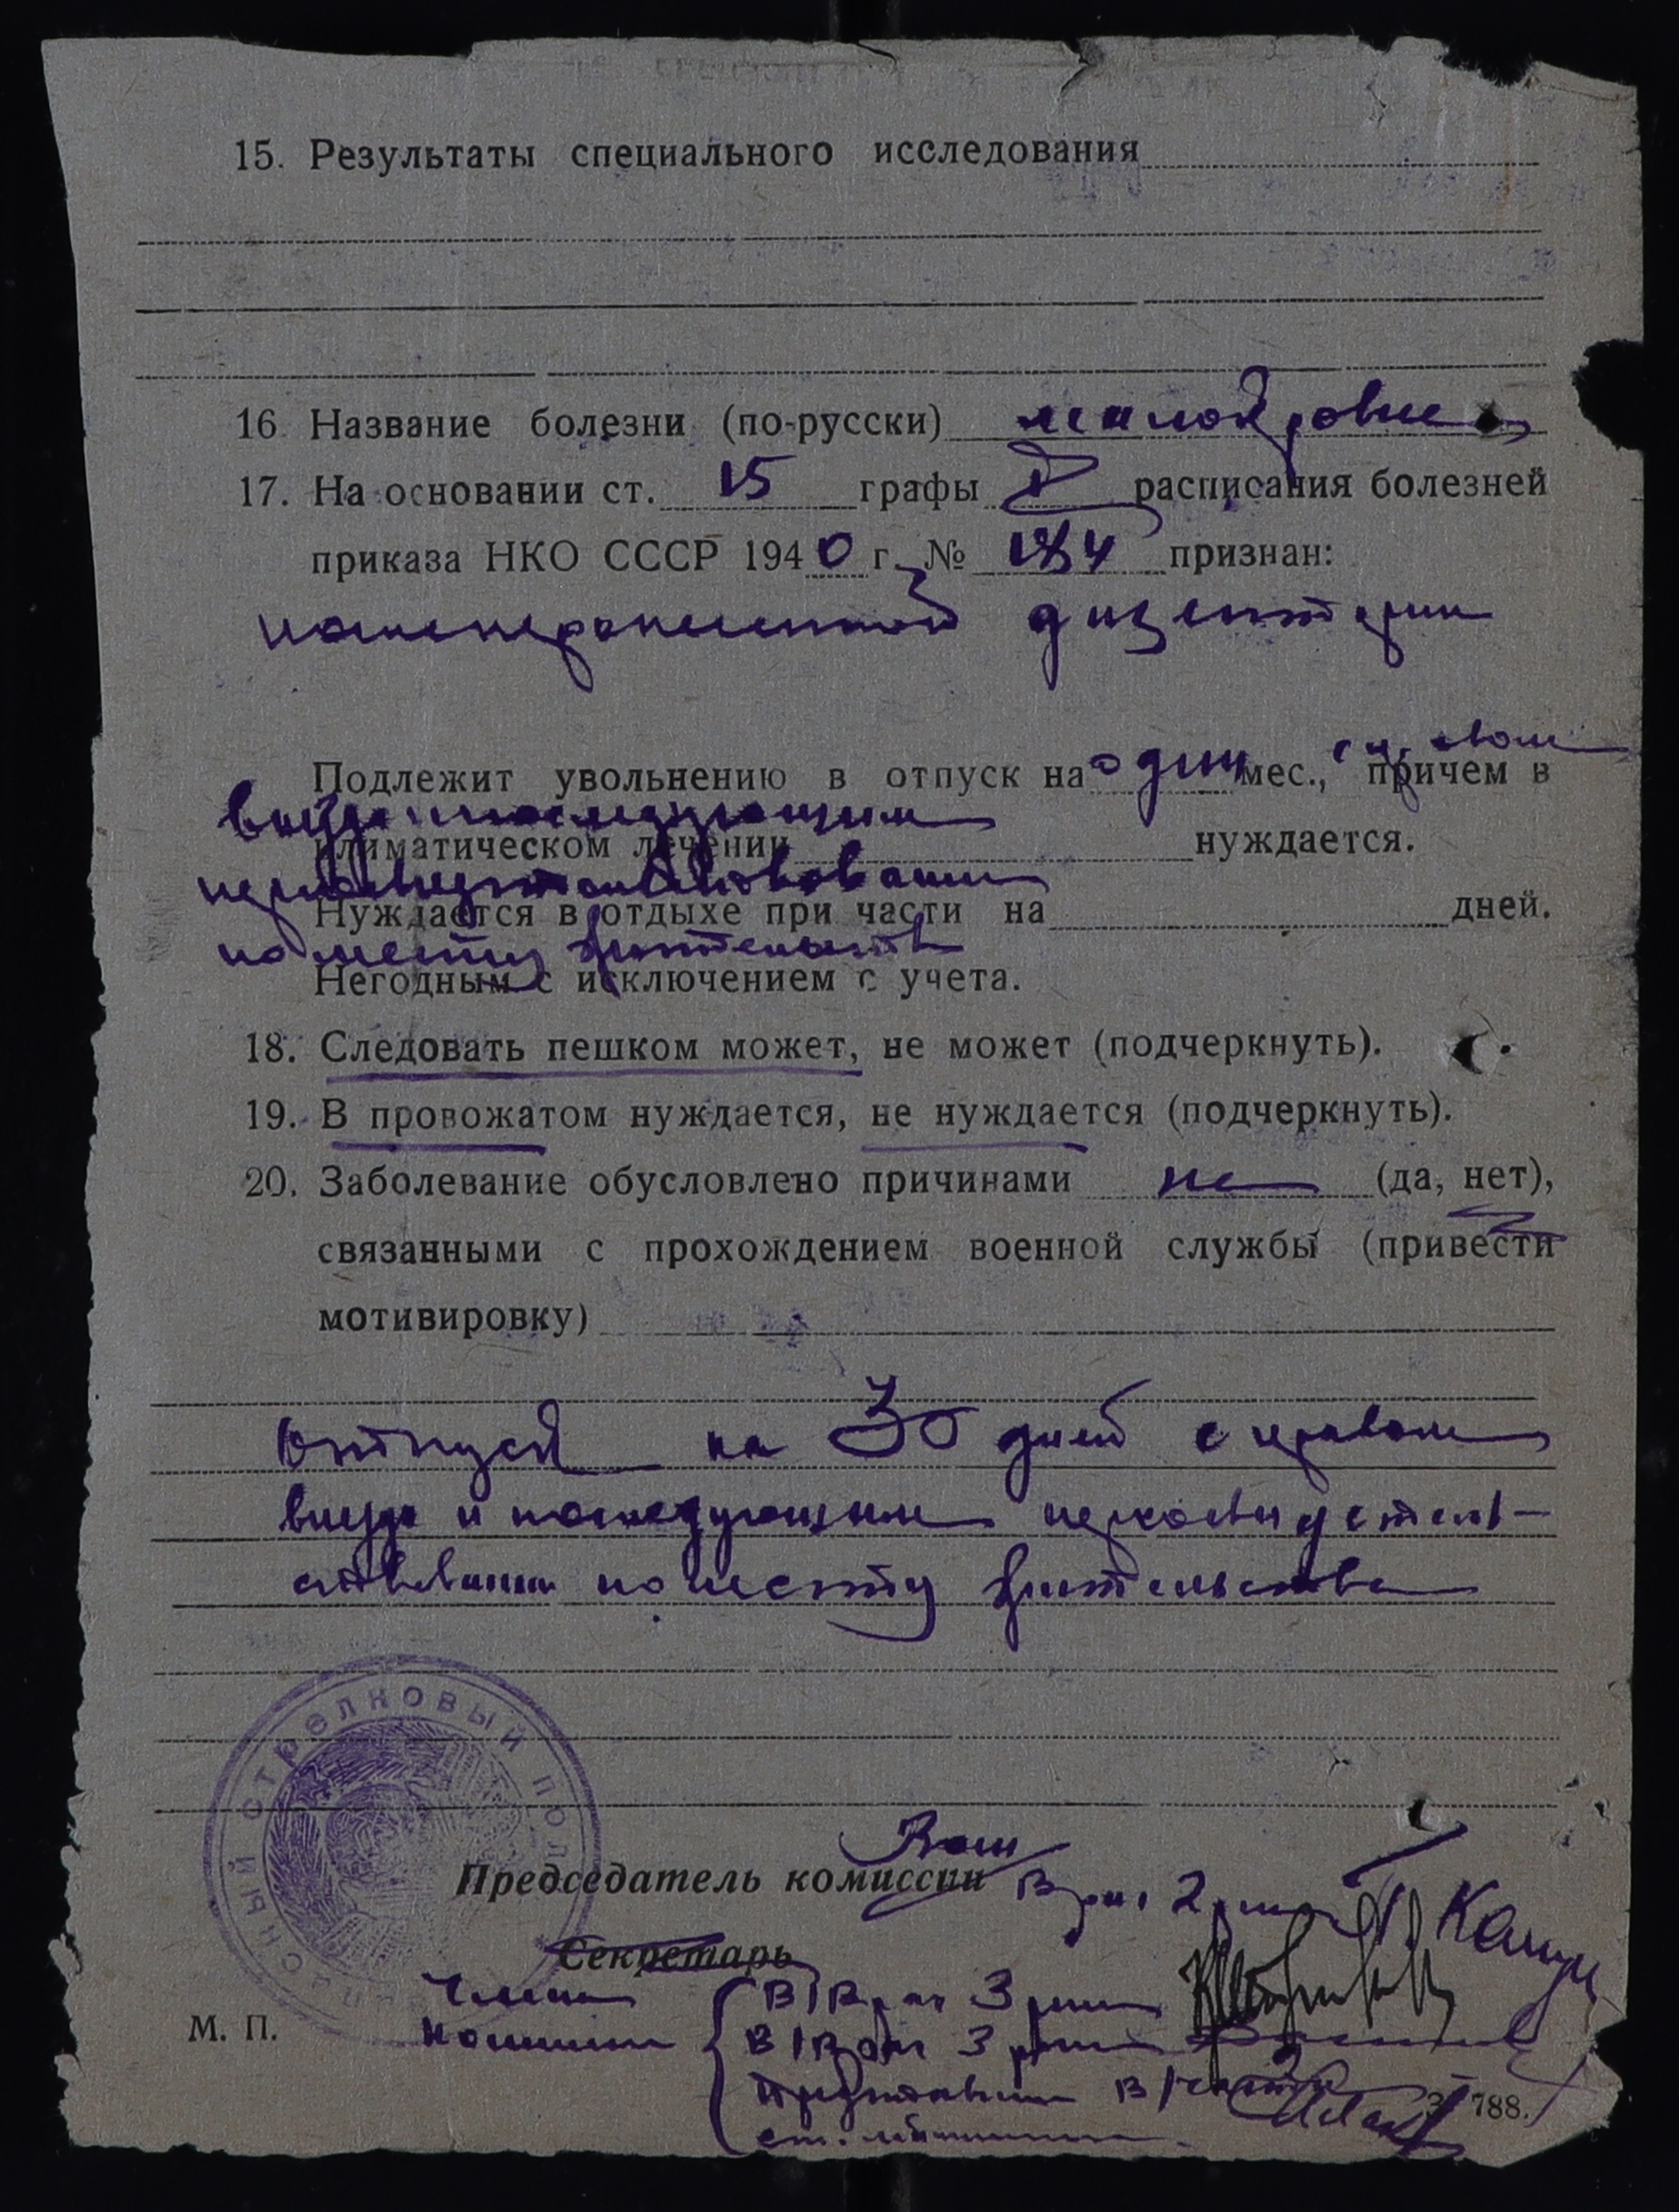 15. Результаты специального исследования
16. Название болезни (по-русски) малокровие
17. На основании ст. 15 графы расписания болезней
приказа НКО СССР 1940 г. № 184 признан:
дизентерии
Подлежит увольнению в отпуск на один мес., причем в
выезда и последующим
климатическом лечении нуждается.
переосвидетельствованием
Нуждается в отдыхе при части на дней.
по месту жительства
Негодным с исключением с учета.
18. Следовать пешком может, не может (подчеркнуть).
19. В провожатом нуждается, не нуждается (подчеркнуть).
20. Заболевание обусловлено причинами не (да, нет),
связанными с прохождением военной службы (привести
мотивировку)
Отпуск на 30 дней с правом
выезда и последующим переосвидетель-
ствованием по месту жительства
запасный стрелковый полк
Председатель комиссии
Секретарь
Члены В/Врач 3 ранга
М. П. комиссии В/Врач 3 ранга
Представитель В/части
788.